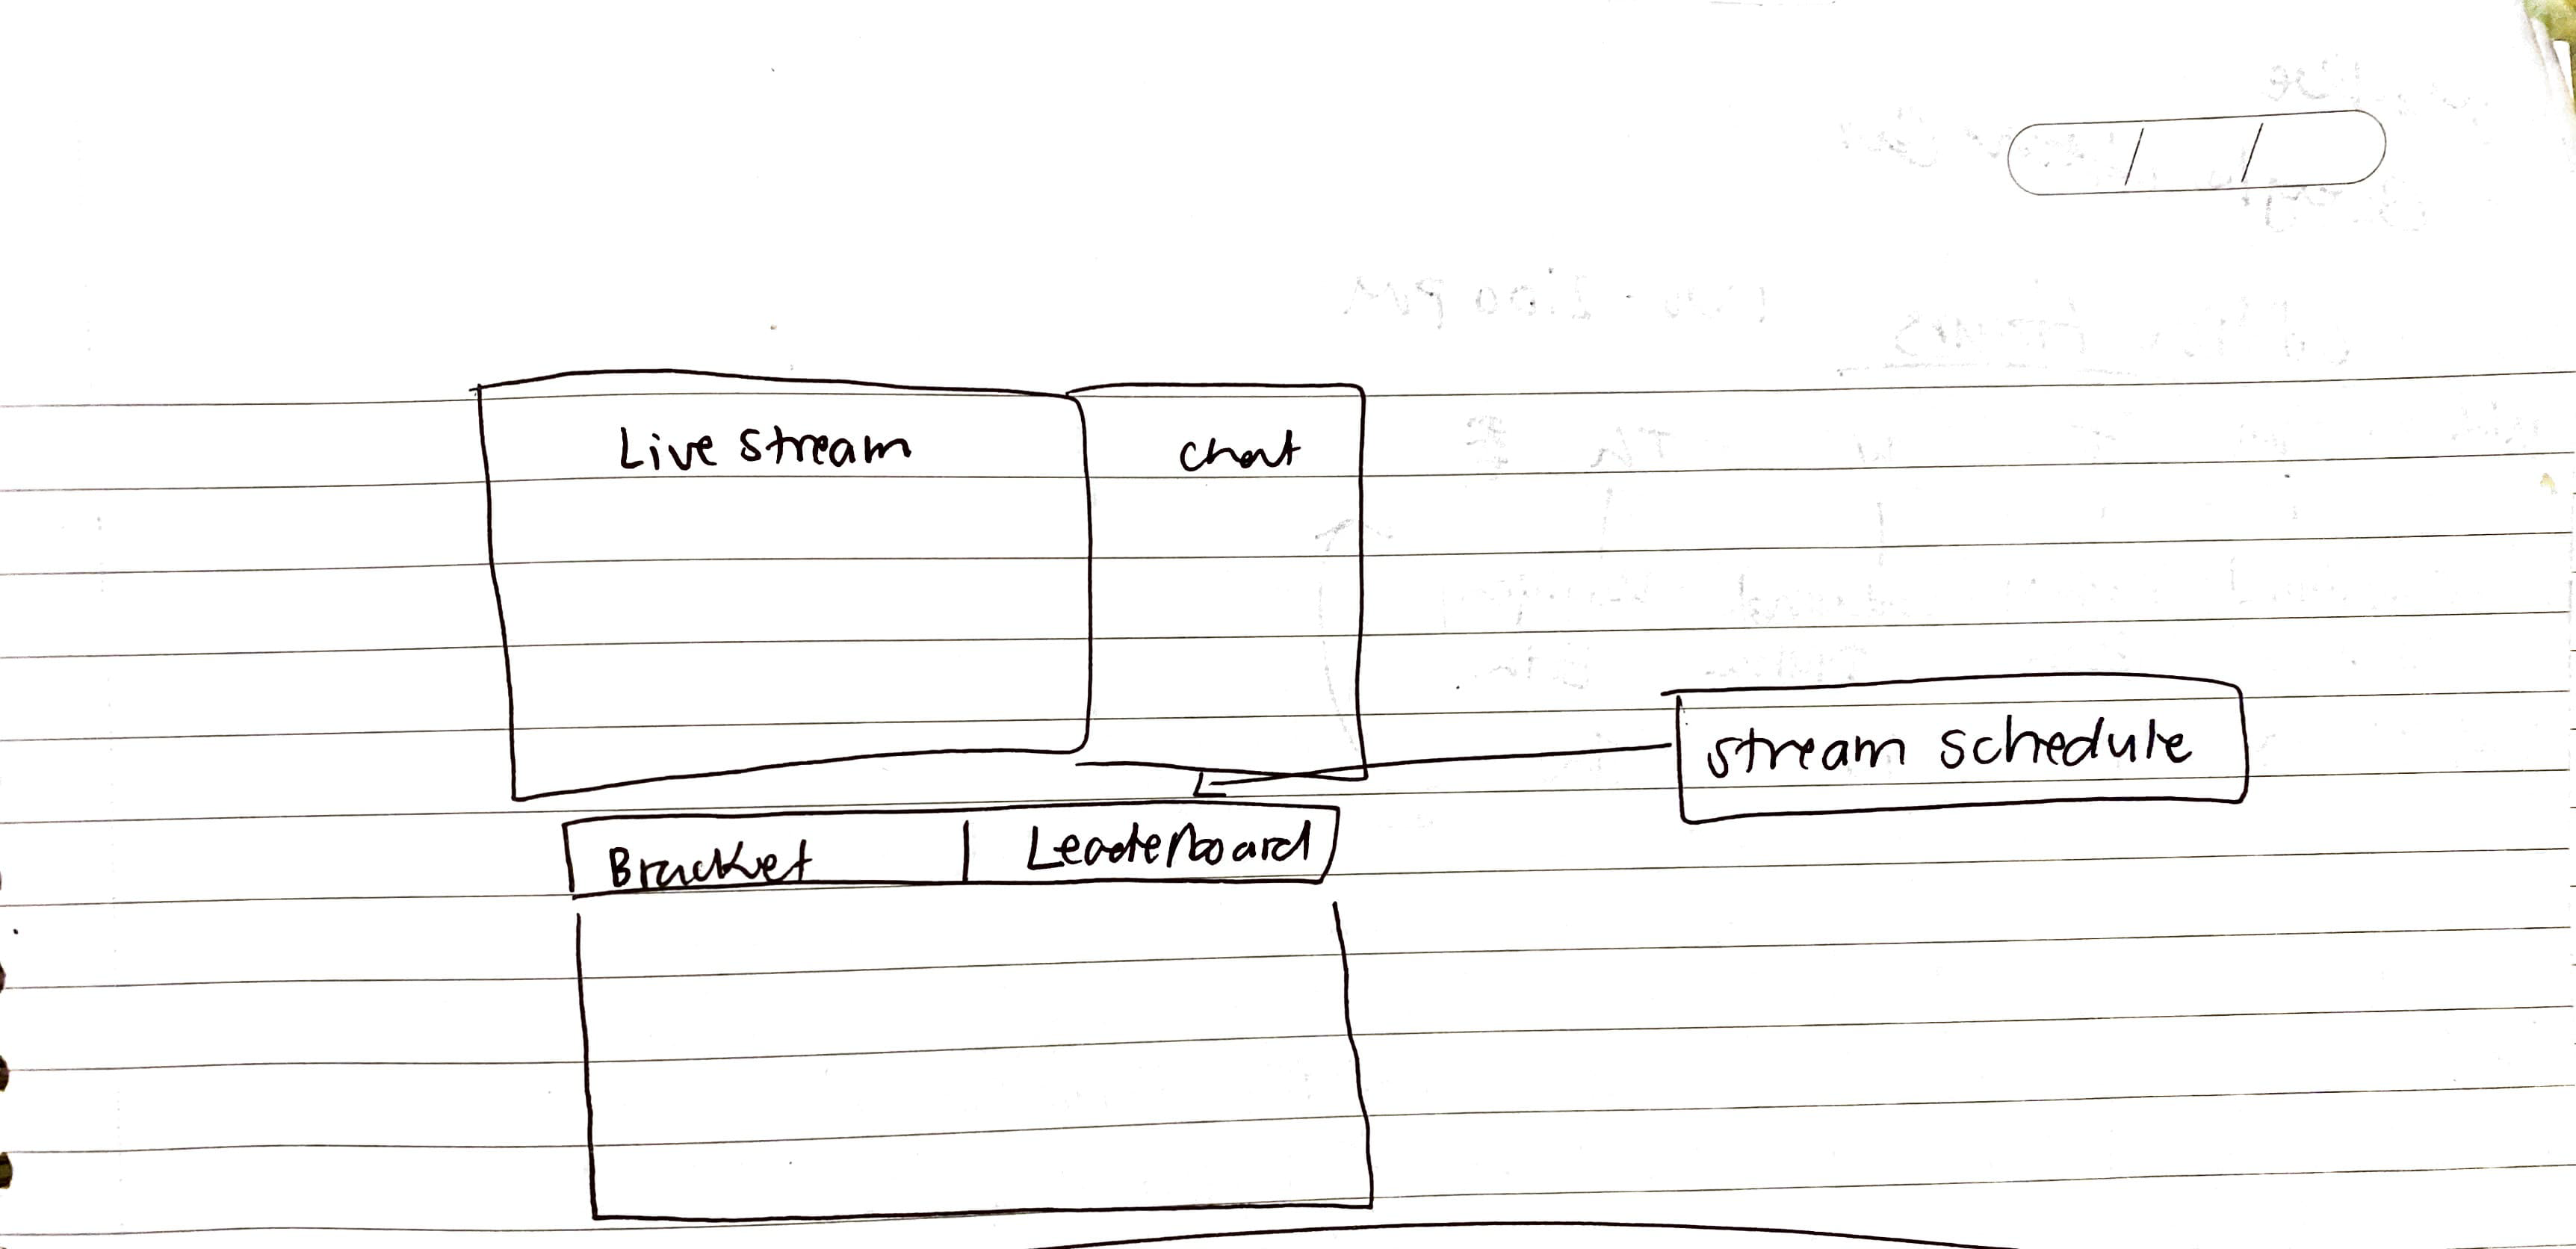 Live stream
chat
stream schedule
Bracket | Leaderboard